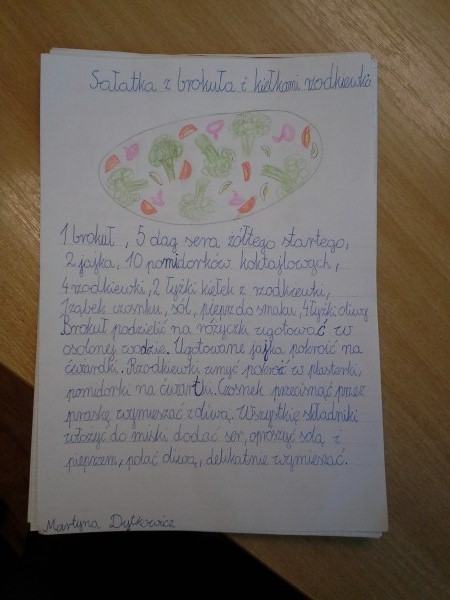 Sałatka z brokuła i kiełkami rzodkiewki
1 brokuł, 5 dag sera żółtego startego,
2 jajka, 10 pomidorków koktajlowych,
4 rzodkiewki, 2 łyżki kiełek z rzodkiewki,
1 ząbek czosnku, sól, pieprz do smaku, 4 łyżki oliwy
Brokuł podzielić na różyczki ugotować w
osolonej wodzie. Ugotowane jajka pokroić na
ćwiartki. Rzodkiewki umyć pokroić w plasterki,
pomidorki na ćwiartki. Czosnek przecisnąć przez
praskę wymieszać z oliwą. Wszystkie składniki
włożyć do miski dodać ser, oprószyć solą i
pieprzem, polać oliwą, delikatnie wymieszać.
Martyna Dytkowicz